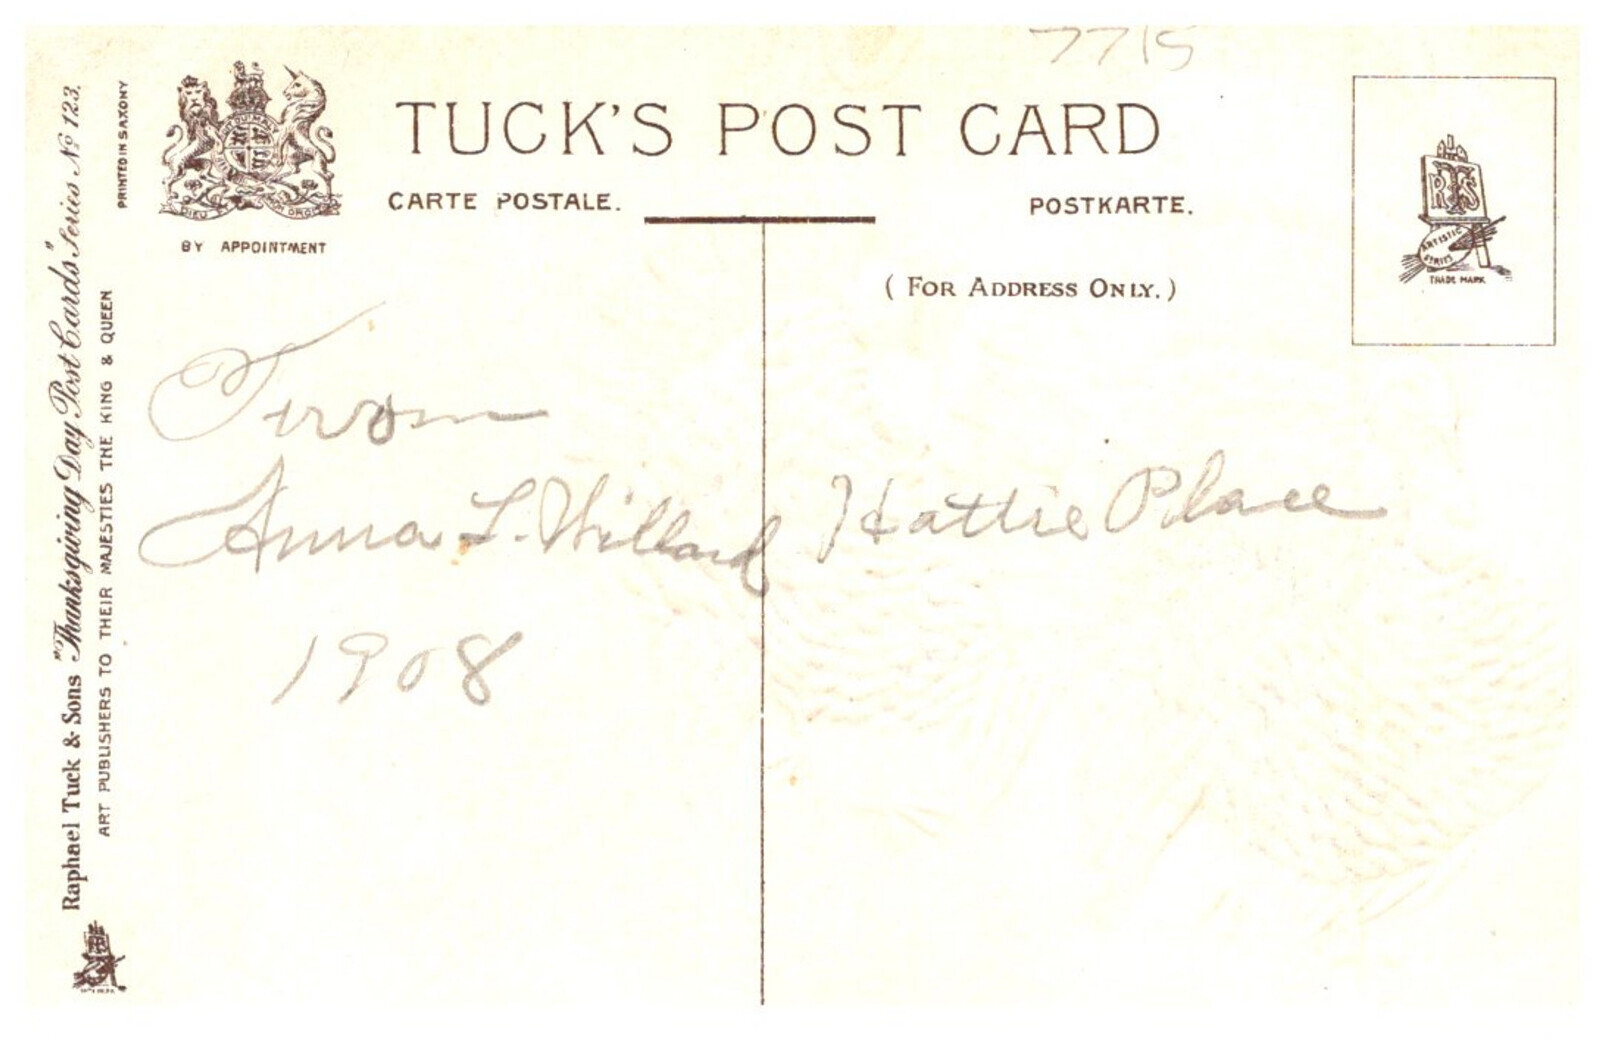 7715
TUCK'S POST CARD
CARTE POSTALE.
POSTKARTE.
(FOR ADDRESS ONLY.)
BY APPOINTMENT
DIEU ET MON DROIT
RTS
ARTISTIC
SERIES
TRADE MARK
PRINTED IN SAXONY
Raphael Tuck & Sons "Thanksgiving Day Post Cards" Series No 123.
ART PUBLISHERS TO THEIR MAJESTIES THE KING & QUEEN
From
Anna L. Willard
1908
Hattie Place